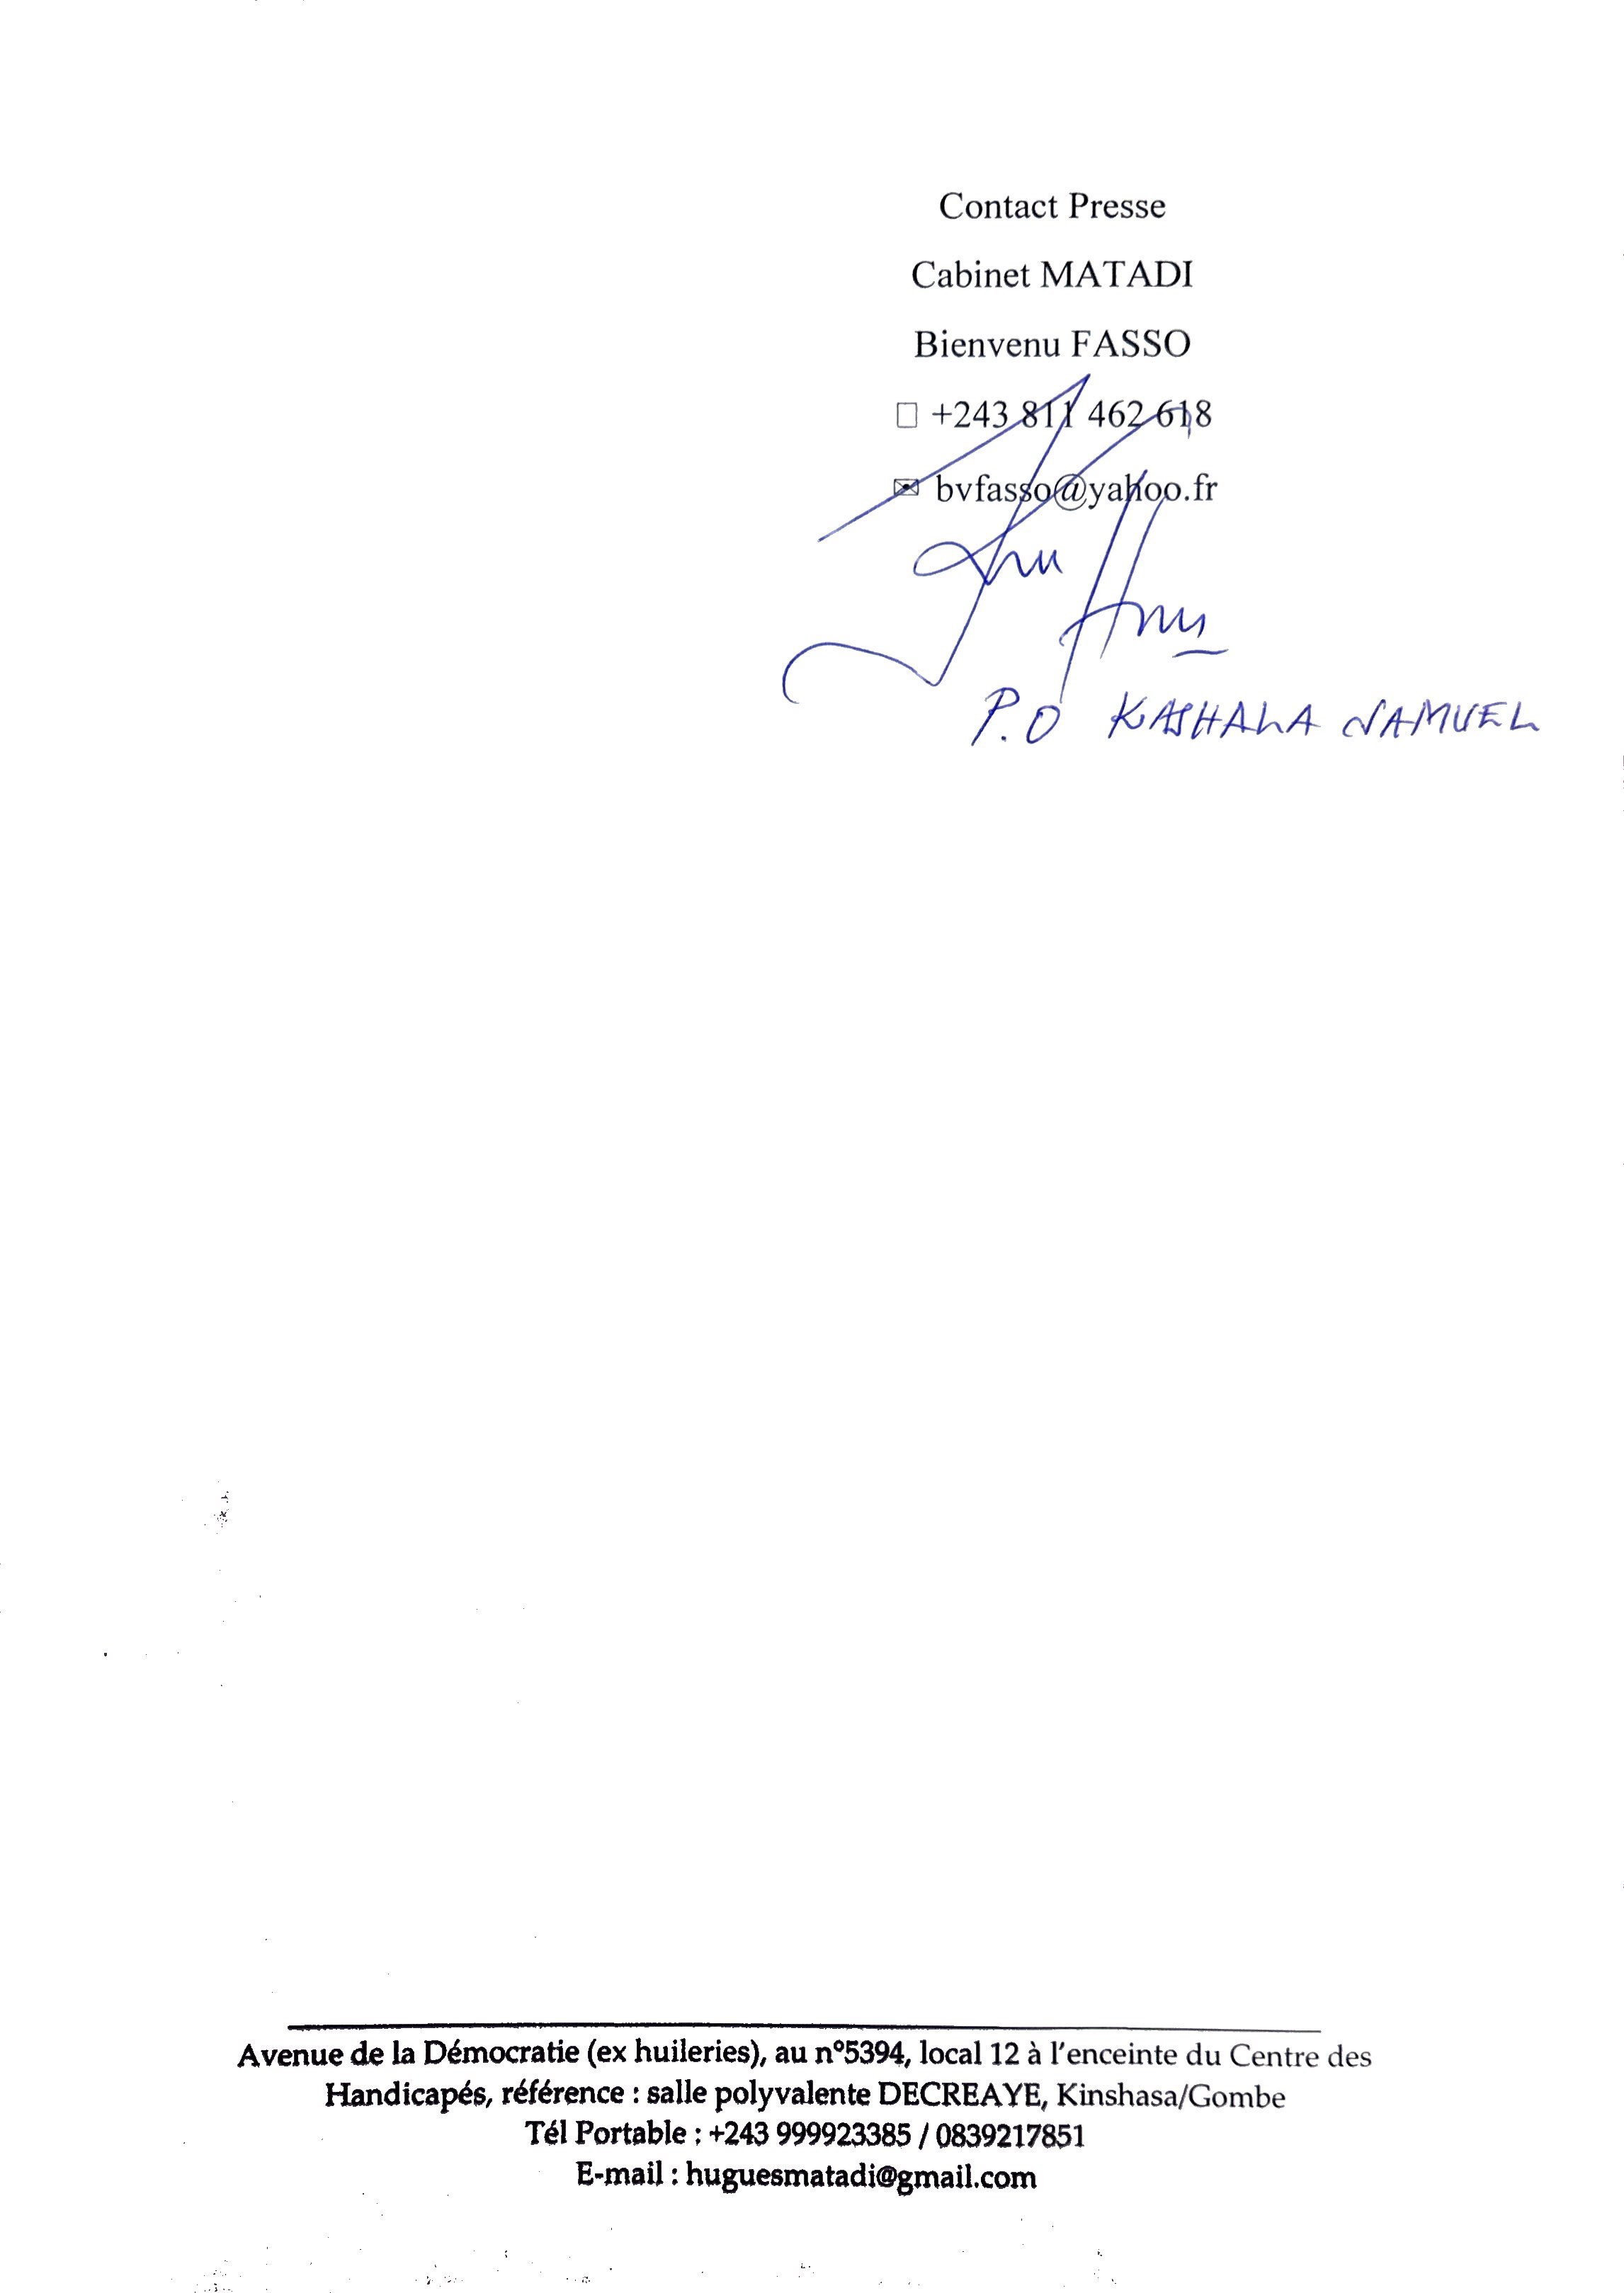 Contact Presse
Cabinet MATADI
Bienvenu FASSO
+243 811 462 618
bvfasso@yahoo.fr
P.O KASHALA SAMUEL
Avenue de la Démocratie (ex huileries), au n°5394, local 12 à l'enceinte du Centre des
Handicapés, référence : salle polyvalente DECREAYE, Kinshasa/Gombe
Tél Portable : +243 999923385 / 0839217851
E-mail : huguesmatadi@gmail.com